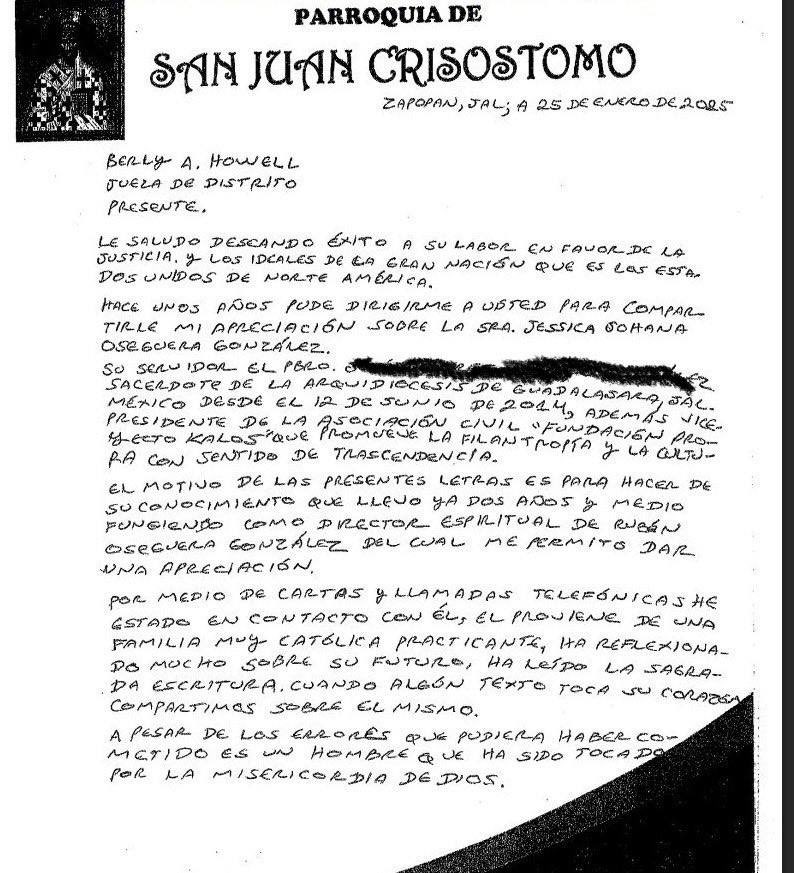 PARROQUIA DE
SAN JUAN CRISOSTOMO
ZAPOPAN, JAL; A 25 DE ENERO DE 2025
BERLY A. HOWELL
JUEZA DE DISTRITO
PRESENTE.
LE SALUDO DESEANDO ÉXITO A SU LABOR EN FAVOR DE LA
JUSTICIA. Y LOS IDEALES DE LA GRAN NACIÓN QUE ES LOS ESTA-
DOS UNIDOS DE NORTE AMÉRICA.
HACE UNOS AÑOS PUDE DIRIGIRME A USTED PARA COMPAR-
TIRLE MI APRECIACIÓN SOBRE LA SRA. JESSICA JOHANA
OSEGUERA GONZÁLEZ.
SU SERVIDOR EL PBRO.
SACERDOTE DE LA ARQUIDIOCESIS DE GUADALAJARA, JAL.
MÉXICO DESDE EL 12 DE JUNIO DE 2014, ADEMÁS VICE-
PRESIDENTE DE LA ASOCIACIÓN CIVIL "FUNDACIÓN PRO-
YECTO KALOS" QUE PROMUEVE LA FILANTROPÍA Y LA CULTU-
RA CON SENTIDO DE TRASCENDENCIA.
EL MOTIVO DE LAS PRESENTES LETRAS ES PARA HACER DE
SU CONOCIMIENTO QUE LLEVO YA DOS AÑOS Y MEDIO
FUNGIENDO COMO DIRECTOR ESPIRITUAL DE RUBÉN
OSEGUERA GONZÁLEZ DEL CUAL ME PERMITO DAR
UNA APRECIACIÓN.
POR MEDIO DE CARTAS Y LLAMADAS TELEFÓNICAS HE
ESTADO EN CONTACTO CON ÉL, EL PROVIENE DE UNA
FAMILIA MUY CATÓLICA PRACTICANTE, HA REFLEXIONA-
DO MUCHO SOBRE SU FUTURO, HA LEÍDO LA SAGRA-
DA ESCRITURA. CUANDO ALGÚN TEXTO TOCA SU CORAZÓN
COMPARTIMOS SOBRE EL MISMO.
A PESAR DE LOS ERRORES QUE PUDIERA HABER CO-
METIDO ES UN HOMBRE QUE HA SIDO TOCADO
POR LA MISERICORDIA DE DIOS.